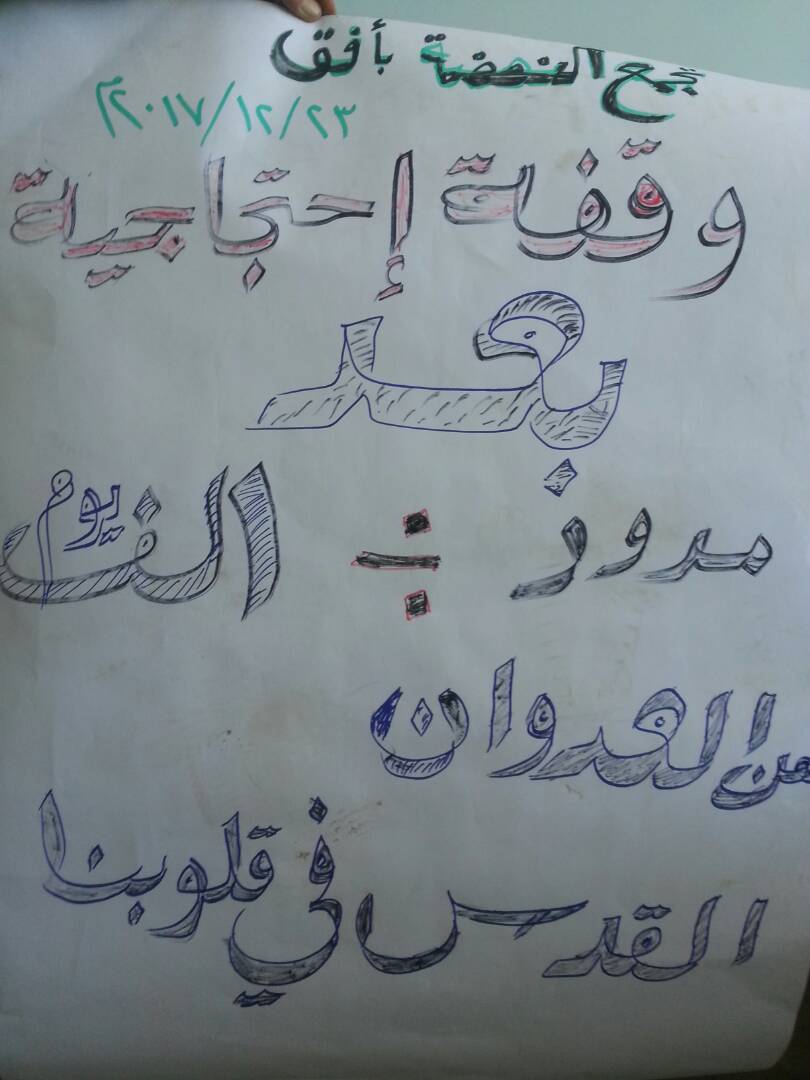 تجمع النهضة بأفق
٢٣/١٢/٢٠١٧م
وقفة إحتجاجية
بعد
مرور ÷ ألف يوم
من العدوان
القدس في قلوبنا